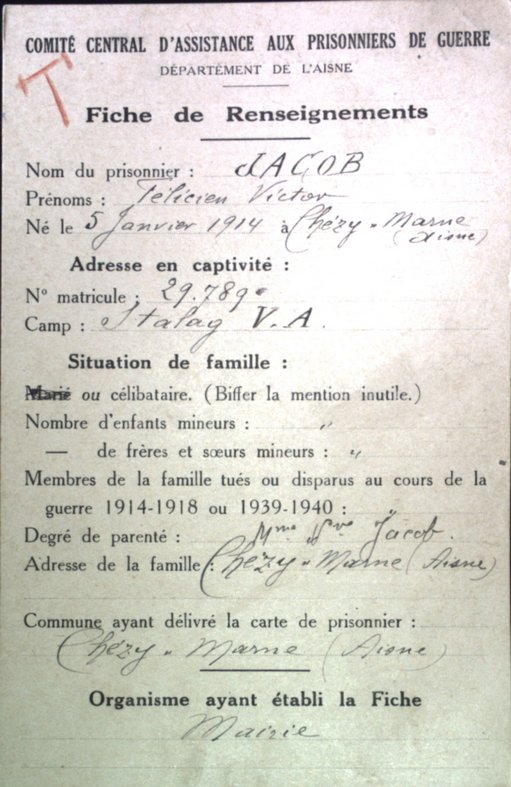 T
COMITÉ CENTRAL D'ASSISTANCE AUX PRISONNIERS DE GUERRE
DÉPARTEMENT DE L'AISNE
Fiche de Renseignements
Nom du prisonnier : JACOB
Prénoms : Félicien Victor
Né le 5 Janvier 1914 à Chézy s/ Marne
(Aisne)
Adresse en captivité :
N° matricule : 29.789
Camp : Stalag V.A.
Situation de famille :
Marié ou célibataire. (Biffer la mention inutile.)
Nombre d'enfants mineurs : "
— de frères et sœurs mineurs : "
Membres de la famille tués ou disparus au cours de la
guerre 1914-1918 ou 1939-1940 :
Degré de parenté : Mme Vve Jacob.
Adresse de la famille : Chézy s/ Marne (Aisne)
Commune ayant délivré la carte de prisonnier :
Chézy s/ Marne (Aisne)
Organisme ayant établi la Fiche
Mairie